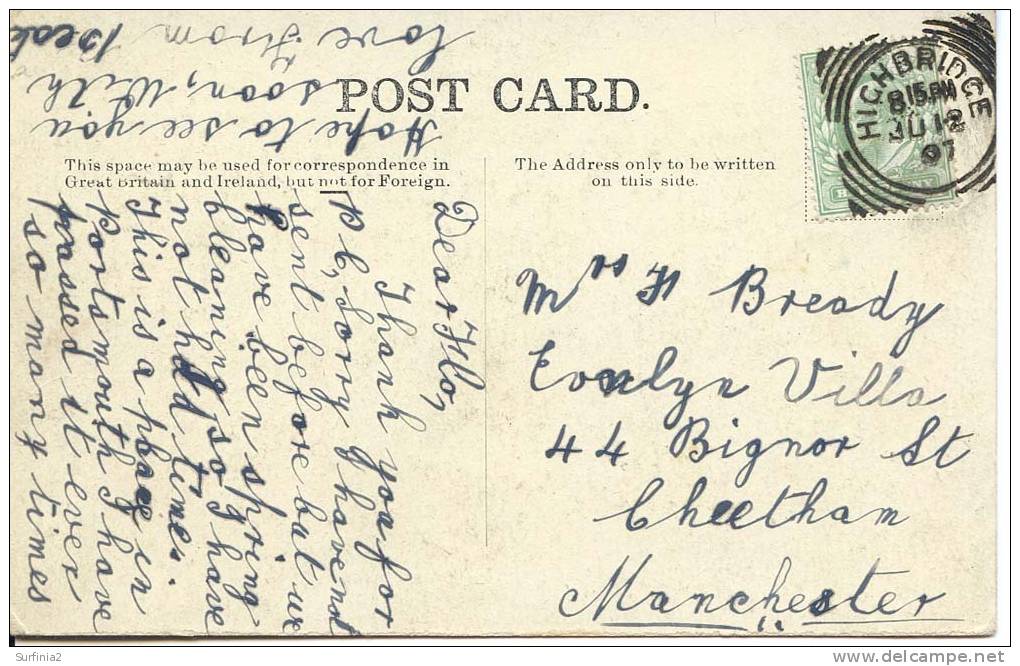 POST CARD.
This space may be used for correspondence in
Great Britain and Ireland, but not for Foreign.
The Address only to be written
on this side.
HIGHBRIDGE
8.15 PM
JU 12
07
Mrs F Bready
Evelyn Villa
44 Bignor St
Cheetham
Manchester
Dear Flo,
Thank you for
p c, Sorry I have not
sent before but we
have been spring
cleaning so I have
not had time.
This is a place in
portsmouth I have
passed it ever
so many times
Hope to see you
soon, With
love From
Surfinia2
www.delcampe.net